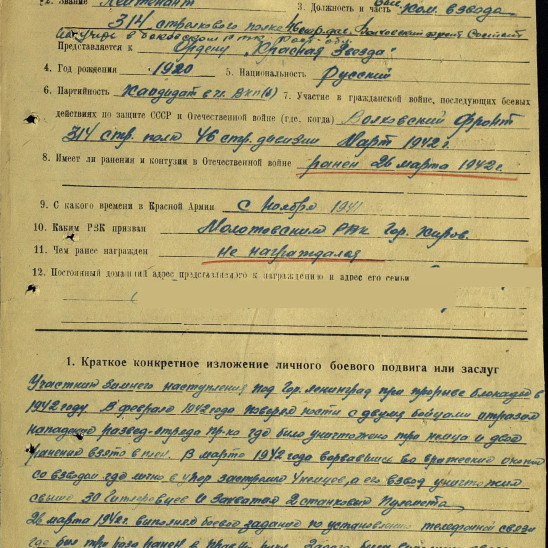 2. Звание Лейтенант 3. Должность и часть Ком. взвода
314 стрелкового полка 46 стр. див. Волховский фронт Состоит
на учёте в
Представляется к Ордену "Красная Звезда"
4. Год рождения 1920 5. Национальность Русский
6. Партийность Кандидат в чл. ВКП(б) 7. Участие в гражданской войне, последующих боевых
действиях по защите СССР и Отечественной войне (где, когда) Волховский Фронт
314 стр. полк 46 стр. дивизии Март 1942 г.
8. Имеет ли ранения и контузии в Отечественной войне ранен 26 марта 1942 г.
9. С какого времени в Красной Армии с Ноября 1941
10. Каким РВК призван Молотовским РВК Гор. Киров.
11. Чем ранее награжден не награждался
12. Постоянный домашний адрес представляемого к награждению и адрес его семьи
1. Краткое конкретное изложение личного боевого подвига или заслуг
Участник зимнего наступления под Гор. Ленинград при прорыве блокады в
1942 году. В феврале 1942 года с двумя бойцами отразил
нападение развед-отряда пр-ка где было уничтожено три немца и двое
ранеными взято в плен. В марте 1942 года ворвавшись во вражеские окопы
со взводом где лично в упор застрелил 4 немцев, а его взвод уничтожил
свыше 30 Гитлеровцев и захватил 2 станковых пулемета.
26 марта 1942 г. выполняя боевое задание по установлению телефонной связи
где был три раза ранен в